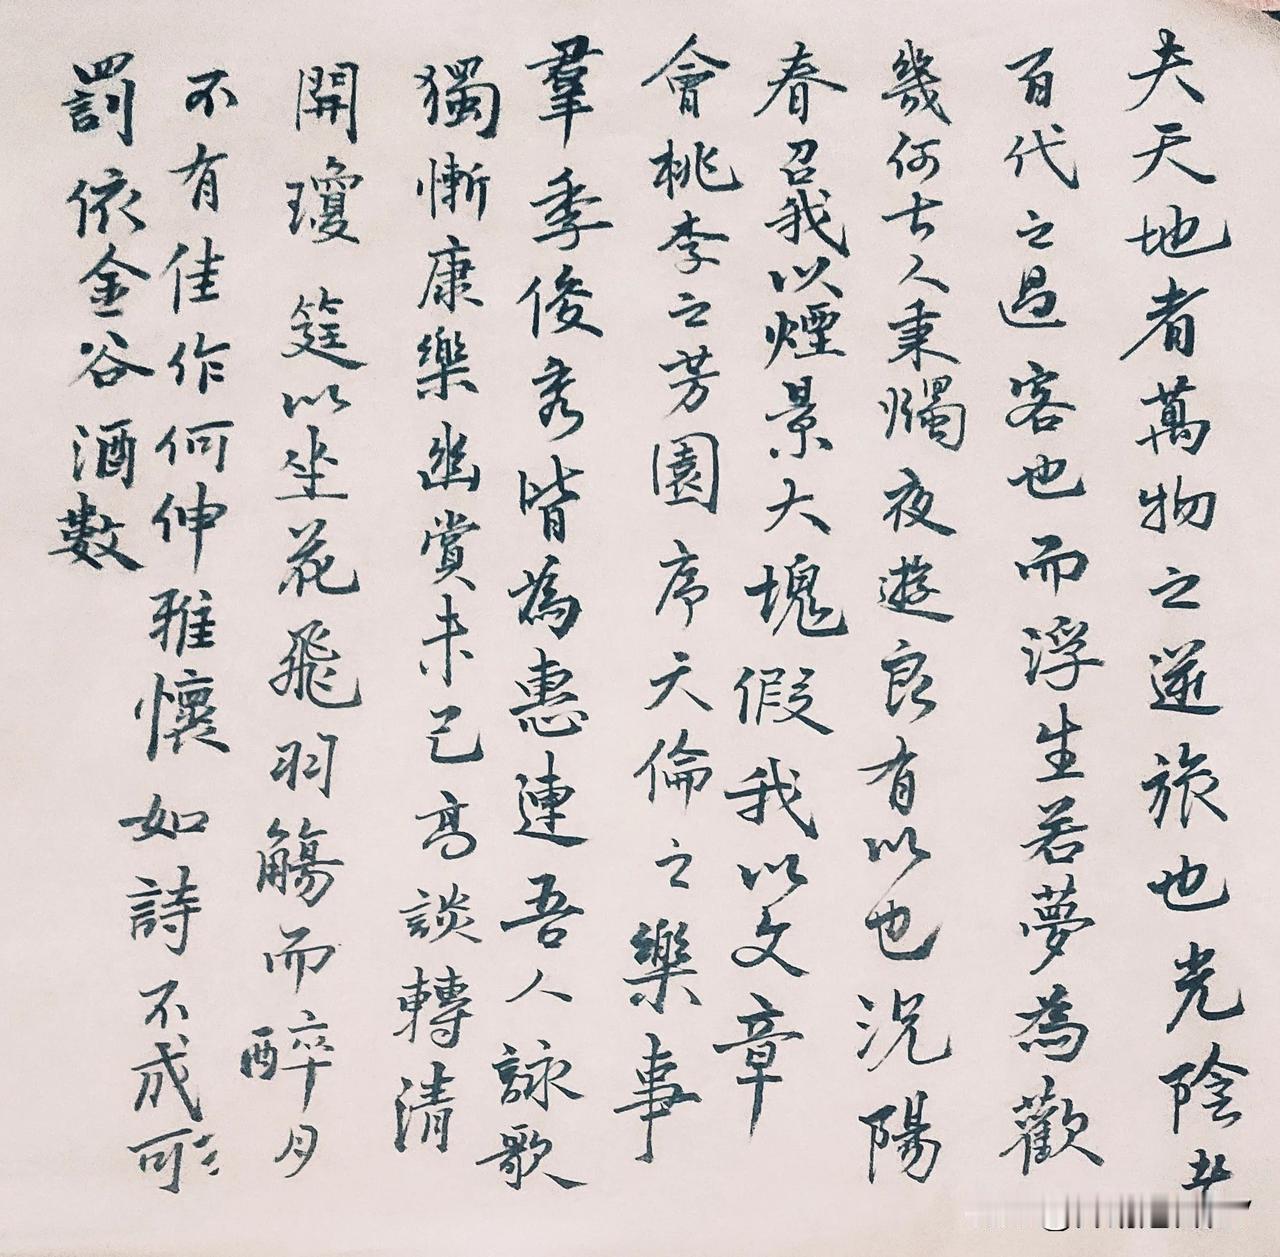 夫天地者萬物之逆旅也光陰
百代之過客也而浮生若夢為歡
幾何古人秉燭夜遊良有以也況陽
春召我以煙景大塊假我以文章
會桃李之芳園序天倫之樂事
羣季俊秀皆為惠連吾人詠歌
獨慚康樂幽賞未已高談轉清
開瓊筵以坐花飛羽觴而醉月
不有佳作何伸雅懷如詩不成可
罰依金谷酒數